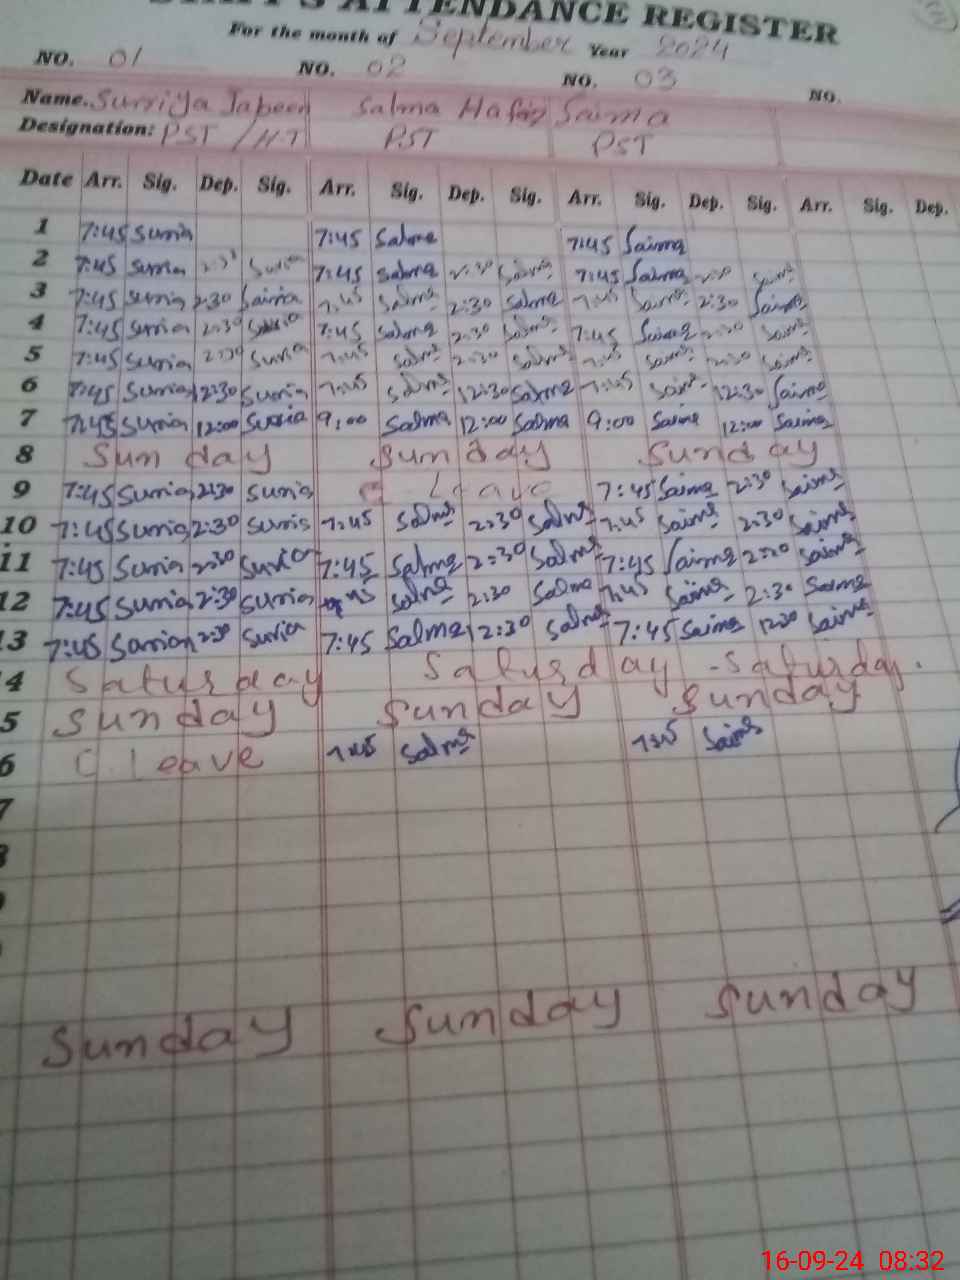 STAFF'S ATTENDANCE REGISTER
For the month of September Year 2024
NO. 01 NO. 02 NO. 03 NO.
Name. Surriya Jabeen Salma Hafiz Saima
Designation: PST / H.T PST PST
Date Arr. Sig. Dep. Sig. Arr. Sig. Dep. Sig. Arr. Sig. Dep. Sig. Arr. Sig. Dep.
1 7:45 Surria 7:45 Salma 7:45 Saima
2 7:45 Surria 2:30 Surria 7:45 Salma 2:30 Salma 7:45 Saima 2:30 Saima
3 7:45 Surria 2:30 Surria 7:45 Salma 2:30 Salma 7:45 Saima 2:30 Saima
4 7:45 Surria 2:30 Surria 7:45 Salma 2:30 Salma 7:45 Saima 2:30 Saima
5 7:45 Surria 2:30 Surria 7:45 Salma 2:30 Salma 7:45 Saima 2:30 Saima
6 7:45 Surria 12:30 Surria 7:45 Salma 12:30 Salma 7:45 Saima 12:30 Saima
7 7:45 Surria 12:00 Surria 9:00 Salma 12:00 Salma 9:00 Saima 12:00 Saima
8 Sunday Sunday Sunday
9 7:45 Surria 2:30 Surria C Leave 7:45 Saima 2:30 Saima
10 7:45 Surria 2:30 Surria 7:45 Salma 2:30 Salma 7:45 Saima 2:30 Saima
11 7:45 Surria 2:30 Surria 7:45 Salma 2:30 Salma 7:45 Saima 2:30 Saima
12 7:45 Surria 2:30 Surria 7:45 Salma 2:30 Salma 7:45 Saima 2:30 Salma
13 7:45 Surria 2:30 Surria 7:45 Salma 12:30 Salma 7:45 Saima 12:30 Saima
4 Saturday Saturday Saturday.
5 Sunday Sunday Sunday
6 C. Leave 7:45 Salma 7:45 Saima
7
Sunday Sunday Sunday
16-09-24 08:32